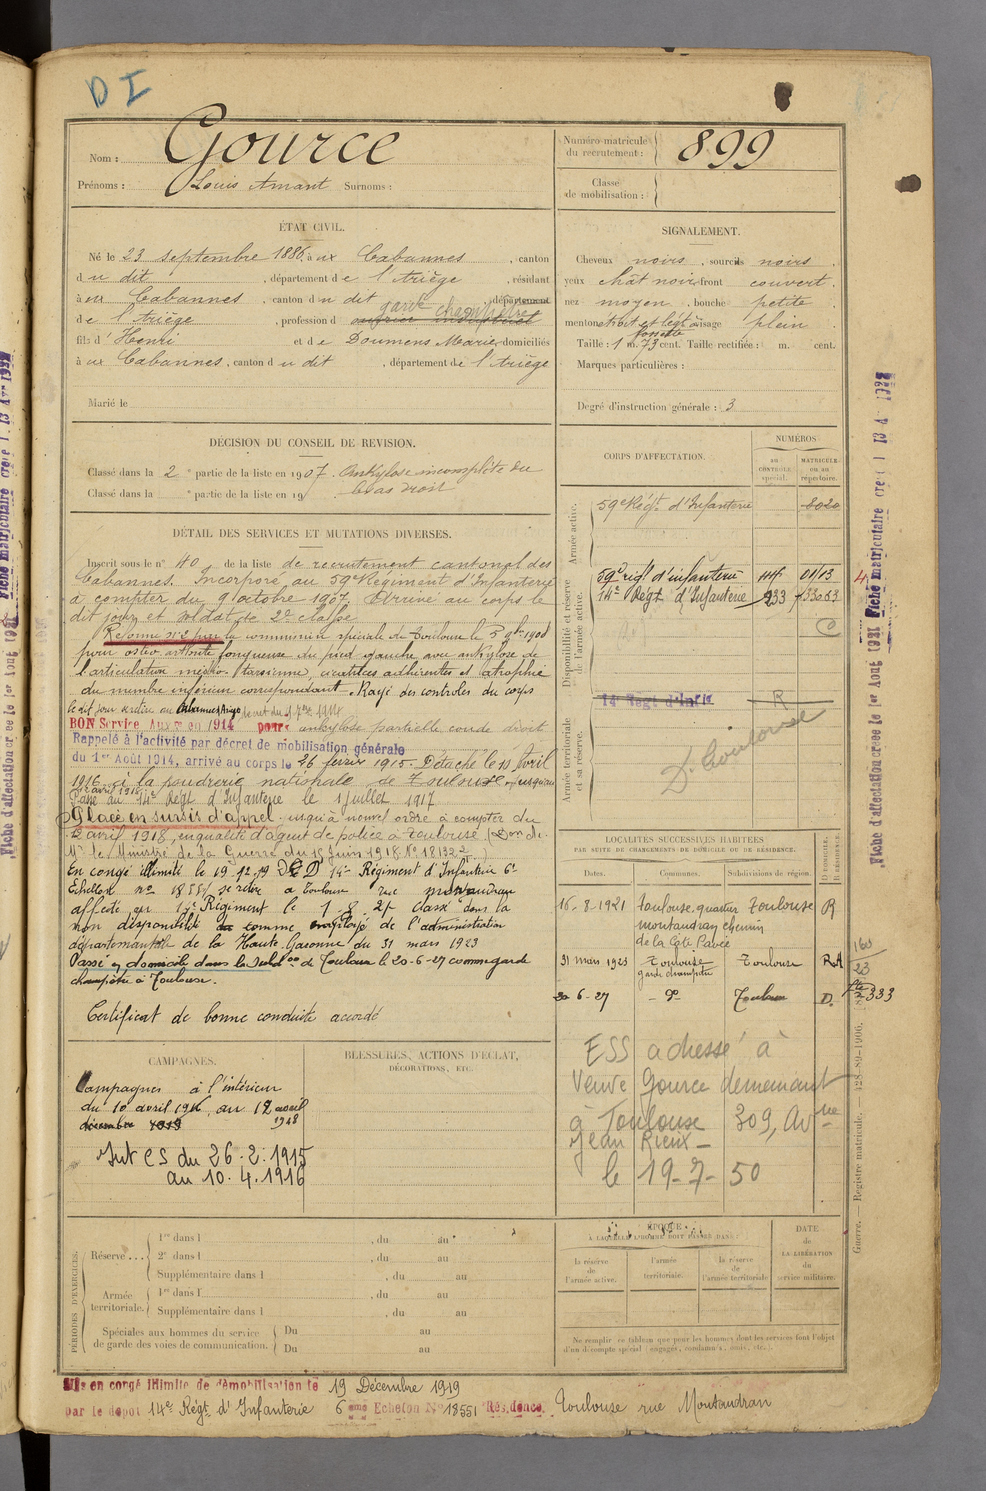 D I
Nom : Gource
Prénoms : Louis Amant Surnoms :
Numéro matricule du recrutement : 899
Classe de mobilisation :
ÉTAT CIVIL.
Né le 23 septembre 1886, à ux Cabannes, canton
d u dit, département de l'Ariège, résidant
à ux Cabannes, canton du dit département
de l'Ariège, profession d garde champêtre
fils d'Henri et de Doumens Marie domiciliés
à ux Cabannes, canton du dit, département de l'Ariège
Marié le
SIGNALEMENT.
Cheveux noirs, sourcils noirs
yeux chât noir front couvert
nez moyen, bouche petite
menton étroit et lég à visage plein
fossette
Taille : 1 m. 73 cent. Taille rectifiée : m. cent.
Marques particulières :
Degré d'instruction générale : 3
DÉCISION DU CONSEIL DE REVISION.
Classé dans la 2e partie de la liste en 1907. Ankylose incomplète du
Classé dans la e partie de la liste en 19 bras droit
DÉTAIL DES SERVICES ET MUTATIONS DIVERSES.
Inscrit sous le n° 40 de la liste de recrutement cantonal des
Cabannes. Incorporé au 59e Régiment d'Infanterie
à compter du 9 octobre 1907. Arrivé au corps le
dit jour et soldat de 2e classe.
Réformé n° 2 par la commission spéciale de Toulouse le 5 9bre 1908
pour ostéo arthrite fongueuse du pied gauche avec ankylose de
l'articulation médio-tarsienne, cicatrices adhérentes et atrophie
du membre inférieur correspondant. Rayé des contrôles du corps
le dit jour se retire au Cabannes Ariège
BON Service Auxre en 1914 pour ankylose partielle coude droit
Rappelé à l'activité par décret de mobilisation générale
du 1er Août 1914, arrivé au corps le 26 février 1915. Détaché le 10 Avril
1916 à la poudrerie nationale de Toulouse, jusqu'au
12 avril 1918
Passé au 14e Régt d'Infanterie le 1 juillet 1917
Placé en sursis d'appel jusqu'à nouvel ordre à compter du
12 avril 1918, en qualité d'agent de police à Toulouse (Don de
Mr le Ministre de la Guerre du 15 Juin 1918 No 18132
En congé illimité le 19.12.19 DED 14e Régiment d'Infanterie 6e
Échelon no 18551 se retire à Toulouse rue montaudran
affecté au 14e Régiment le 1-8-21 classé dans la
non disponibilité comme employé de l'administration
départementale de la Haute Garonne du 31 mars 1923
Passé en domicile dans la subdon de Toulouse le 20-6-27 comme garde
champêtre à Toulouse.
Certificat de bonne conduite accordé
CORPS D'AFFECTATION.
NUMÉROS
au CONTRÔLE spécial.
MATRICULE ou au répertoire.
Armée active.
59e Régt d'Infanterie 8020
Disponibilité et réserve de l'armée active.
59e régt d'infanterie 0113
14e Régt d'Infanterie 233
Armée territoriale et sa réserve.
14e Régt d'Infie R
D. Toulouse
LOCALITÉS SUCCESSIVES HABITÉES
PAR SUITE DE CHANGEMENTS DE DOMICILE OU DE RÉSIDENCE.
Dates. Communes. Subdivisions de région. D. DOMICILE. R. RÉSIDENCE.
16-8-1921 Toulouse quartier Toulouse R
montaudran chemin
de la Côte Pavée
31 mars 1923 Toulouse Toulouse R.A
garde champêtre
20 6-27 - do Toulouse D.
ESS adressé à
Veuve Gource demeurant
à Toulouse 309, Avnue
Jean Rieux -
le 19-7-50
CAMPAGNES.
Campagnes à l'intérieur
du 10 avril 1916 au 12 avril 1918
décembre 1919
Int CS du 26.2.1915
au 10.4.1916
BLESSURES, ACTIONS D'ÉCLAT,
DÉCORATIONS, ETC.
PÉRIODES D'EXERCICES.
Réserve ... 1re dans l , du au
2e dans l , du au
Supplémentaire dans l , du au
Armée territoriale. 1re dans l , du au
Supplémentaire dans l , du au
Spéciales aux hommes du service de garde des voies de communication. Du au
Du au
ÉPOQUE
À LAQUELLE L'HOMME DOIT PASSER DANS :
la réserve de l'armée active.
l'armée territoriale.
la réserve de l'armée territoriale
DATE DE LA LIBÉRATION du service militaire.
Ne remplir ce tableau que pour les hommes dont les services font l'objet
d'un décompte spécial (engagés, condamnés, omis, etc.).
Mis en congé illimité de démobilisation le 19 Décembre 1919
par le dépôt 14e Régt d'Infanterie 6ème Echelon No 18551 Résidence Toulouse rue Montaudran
Guerre. — Registre matricule. — 428-89-1906.
Fiche d'affectation créée le 1er Août 1921 Fiche matriculaire